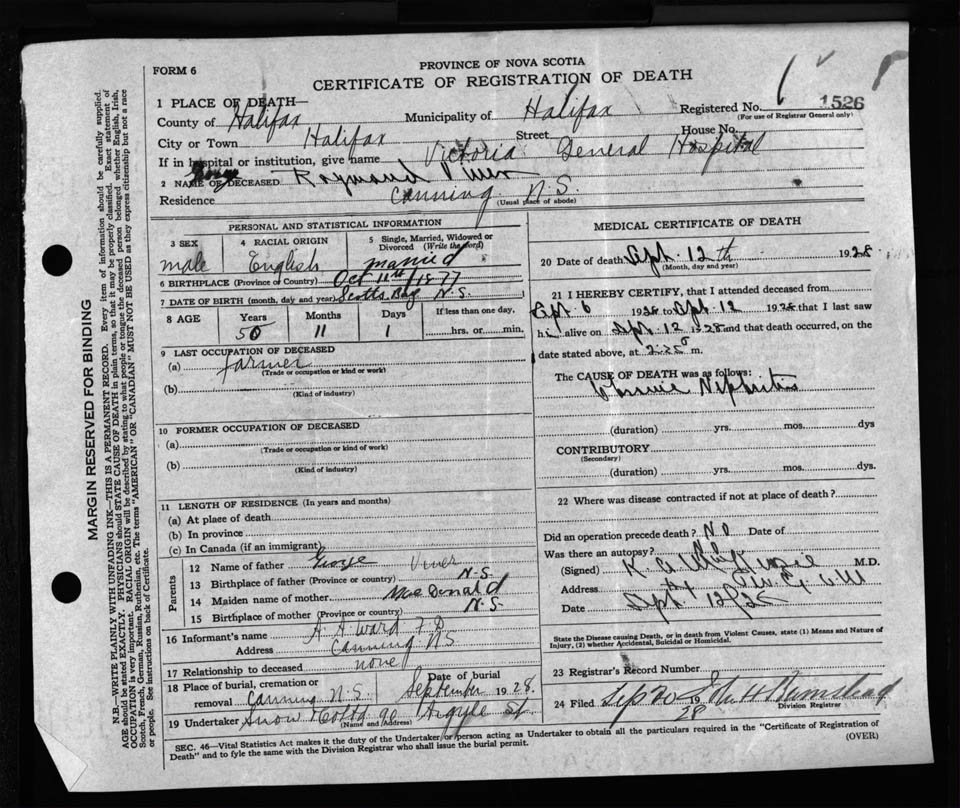 FORM 6
PROVINCE OF NOVA SCOTIA
CERTIFICATE OF REGISTRATION OF DEATH
1 PLACE OF DEATH—
County of Halifax Municipality of Halifax Registered No. 1526
(For use of Registrar General only)
City or Town Halifax Street House No.
If in hospital or institution, give name Victoria General Hospital
2 NAME OF DECEASED Raymond
Residence Canning N.S. (Usual place of abode)
PERSONAL AND STATISTICAL INFORMATION
3 SEX 4 RACIAL ORIGIN 5 Single, Married, Widowed or Divorced (Write the word)
male English married
6 BIRTHPLACE (Province or Country) Oct 11th/1877
7 DATE OF BIRTH (month, day and year) Scotts Bay N.S.
8 AGE Years Months Days If less than one day,
50 11 1 hrs. or min.
9 LAST OCCUPATION OF DECEASED
(a) farmer
(Trade or occupation or kind or work)
(b)
(Kind of industry)
10 FORMER OCCUPATION OF DECEASED
(a)
(Trade or occupation or kind of work)
(b)
(Kind of industry)
11 LENGTH OF RESIDENCE (In years and months)
(a) At place of death
(b) In province
(c) In Canada (if an immigrant)
Parents
12 Name of father George
13 Birthplace of father (Province or country) N.S.
14 Maiden name of mother MacDonald
15 Birthplace of mother (Province or country) N.S.
16 Informant's name A. A. Ward F.D.
Address Canning N.S.
17 Relationship to deceased none
18 Place of burial, cremation or removal Canning N.S. Date of burial September 1928.
19 Undertaker Snow & Co Ltd 90 Argyle St.
(Name and Address)
MEDICAL CERTIFICATE OF DEATH
20 Date of death Sept. 12th 1928
(Month, day and year)
21 I HEREBY CERTIFY, that I attended deceased from
Sept. 6 1928 to Sept. 12 1928 that I last saw
h alive on Sept. 12 1928 and that death occurred, on the
date stated above, at m.
The CAUSE OF DEATH was as follows:
Chronic Nephritis
(duration) yrs. mos. dys
CONTRIBUTORY
(Secondary)
(duration) yrs. mos. dys.
22 Where was disease contracted if not at place of death?
Did an operation precede death? NO Date of
Was there an autopsy?
(Signed) K. A. MacKenzie M.D.
Address
Date Sept 12/28
State the Disease causing Death, or in death from Violent Causes, state (1) Means and Nature of
Injury, (2) whether Accidental, Suicidal or Homicidal.
23 Registrar's Record Number
24 Filed Sep 20 1928
Division Registrar
SEC. 46—Vital Statistics Act makes it the duty of the Undertaker or person acting as Undertaker to obtain all the particulars required in the "Certificate of Registration of
Death" and to fyle the same with the Division Registrar who shall issue the burial permit. (OVER)
MARGIN RESERVED FOR BINDING
N.B.—WRITE PLAINLY WITH UNFADING INK—THIS IS A PERMANENT RECORD. Every item of information should be carefully supplied.
AGE should be stated EXACTLY. PHYSICIANS should STATE CAUSE OF DEATH in plain terms, so that it may be properly classified. Exact statement of
OCCUPATION is very important. RACIAL ORIGIN will be described by stating to what people or tongue the deceased person belonged whether English, Irish,
Scotch, French, German, Russian, Ruthenian, etc. The terms "AMERICAN" OR "CANADIAN" MUST NOT BE USED as they express citizenship but not a race
or people. See instructions on back of Certificate.